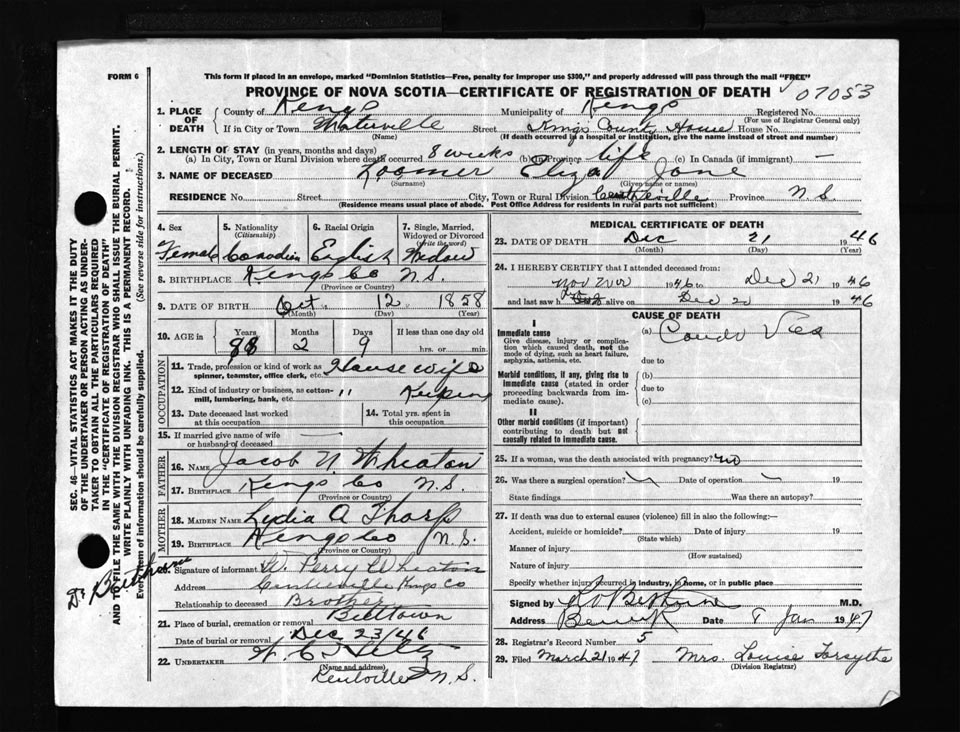 FORM 6
This form if placed in an envelope, marked "Dominion Statistics—Free, penalty for improper use $300," and properly addressed will pass through the mail "FREE"
PROVINCE OF NOVA SCOTIA—CERTIFICATE OF REGISTRATION OF DEATH
07053
1. PLACE OF DEATH County of Kings Municipality of Kings Registered No.
(For use of Registrar General only)
If in City or Town Waterville Street Kings County House House No.
(Name) (If death occurred in a hospital or institution, give the name instead of street and number)
2. LENGTH OF STAY (in years, months and days)
(a) In City, Town or Rural Division where death occurred 8 weeks (b) In Province life (c) In Canada (if immigrant) —
3. NAME OF DECEASED Loomer Eliza Jane
(Surname) (Given name or names)
RESIDENCE No. Street City, Town or Rural Division Centreville Province N.S.
(Residence means usual place of abode. Post Office Address for residents in rural parts not sufficient)
4. Sex 5. Nationality (Citizenship) 6. Racial Origin 7. Single, Married, Widowed or Divorced (write the word)
Female Canadian English Widow
8. BIRTHPLACE Kings Co N.S.
(Province or Country)
9. DATE OF BIRTH Oct 12 1858
(Month) (Day) (Year)
10. AGE in Years Months Days If less than one day old
88 2 9 hrs. or min.
OCCUPATION
11. Trade, profession or kind of work as spinner, teamster, office clerk, etc. Housewife
12. Kind of industry or business, as cotton-mill, lumbering, bank, etc. " Keeping
13. Date deceased last worked at this occupation
14. Total yrs. spent in this occupation
15. If married give name of wife or husband of deceased —
FATHER
16. NAME Jacob N. Wheaton
17. BIRTHPLACE Kings Co N.S.
(Province or Country)
MOTHER
18. MAIDEN NAME Lydia A Tharp
19. BIRTHPLACE Kings Co N.S.
(Province or Country)
20. Signature of informant W. Perry Wheaton
Address Centreville Kings Co
Relationship to deceased Brother
21. Place of burial, cremation or removal Billtown
Date of burial or removal Dec 23/46
22. UNDERTAKER W. C.
(Name and address)
Kentville N.S.
MEDICAL CERTIFICATE OF DEATH
23. DATE OF DEATH Dec 21 1946
(Month) (Day) (Year)
24. I HEREBY CERTIFY that I attended deceased from:
Nov 1946 to Dec 21 1946
and last saw h alive on Dec 20 1946
CAUSE OF DEATH
I
Immediate cause
Give disease, injury or complication which caused death, not the mode of dying, such as heart failure, asphyxia, asthenia, etc.
(a)
due to
Morbid conditions, if any, giving rise to immediate cause (stated in order proceeding backwards from immediate cause).
(b)
due to
(c)
II
Other morbid conditions (if important) contributing to death but not causally related to immediate cause.
25. If a woman, was the death associated with pregnancy? no
26. Was there a surgical operation? Date of operation 19
State findings Was there an autopsy?
27. If death was due to external causes (violence) fill in also the following:—
Accident, suicide or homicide? Date of injury 19
(State which)
Manner of injury
(How sustained)
Nature of injury
Specify whether injury occurred in industry, in home, or in public place
Signed by M.D.
Address Berwick Date 8 Jan 1947
28. Registrar's Record Number 5
29. Filed March 21 1947 Mrs. Louise Forsythe
(Division Registrar)
SEC. 46—VITAL STATISTICS ACT MAKES IT THE DUTY
OF THE UNDERTAKER OR PERSON ACTING AS UNDERTAKER TO OBTAIN ALL THE PARTICULARS REQUIRED
IN THE "CERTIFICATE OF REGISTRATION OF DEATH"
AND TO FILE THE SAME WITH THE DIVISION REGISTRAR WHO SHALL ISSUE THE BURIAL PERMIT.
WRITE PLAINLY WITH UNFADING INK. THIS IS A PERMANENT RECORD.
Every item of information should be carefully supplied. (See reverse side for instructions.)
Dr